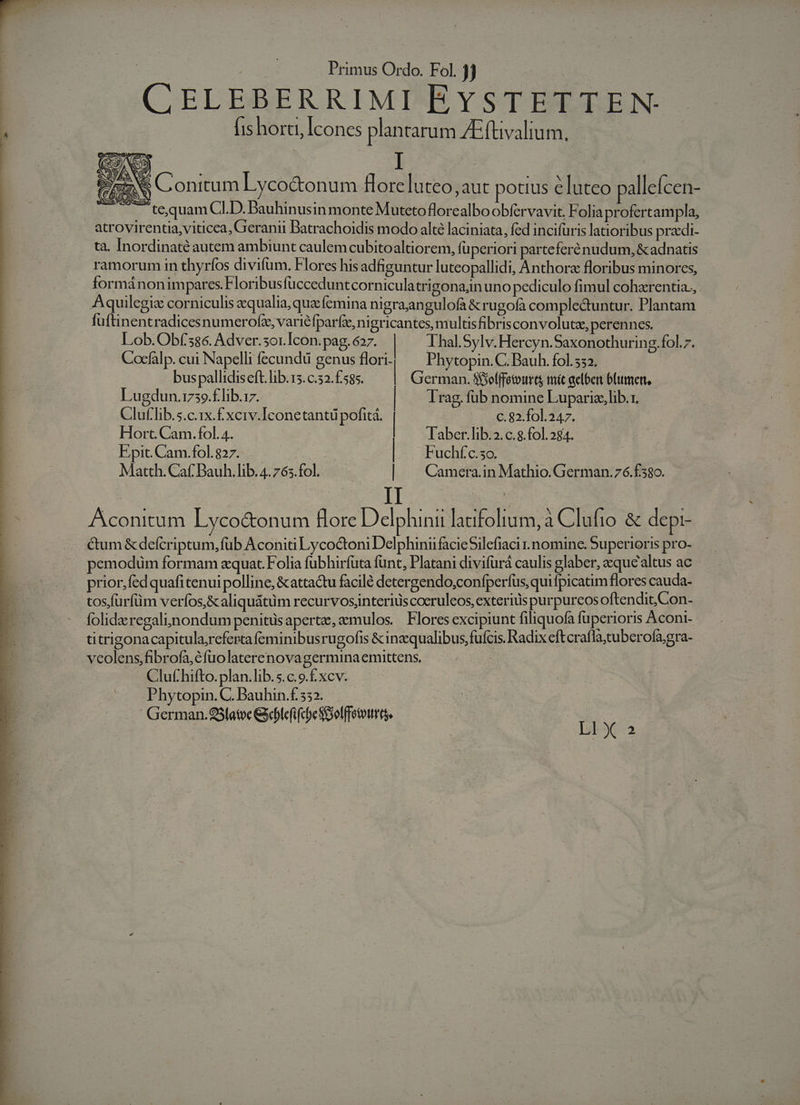 Primus Ordo. Fol. 11
CELEBERRIMI EYSTETTEN-
ſis horti, Icones plantarum Æſtivalium.
I
AConitum Lycoctonum flore luteo, aut potius è luteo palleſcen-
te, quam Cl. D. Bauhinus in monte Muteto flore albo obſervavit. Folia profert ampla,
atrovirentia, viticea, Geranii Batrachoidis modo altè laciniata, ſed inciſuris latioribus prædi-
ta. Inordinatè autem ambiunt caulem cubito altiorem, ſuperiori parte ferè nudum, & adnatis
ramorum in thyrſos diviſum. Flores his adfiguntur luteo pallidi, Anthoræ floribus minores,
formá non impares. Floribus ſuccedunt cornicula trigona, in uno pediculo ſimul cohærentia,
Aquilegiæ corniculis æqualia, quæ ſemina nigra, anguloſa & rugoſa complectuntur. Plantam
ſuſtinent radices numeroſæ, variè ſparſæ, nigricantes, multis fibris convolutæ, perennes.
Lob. Obſ. 386. Adver. 301. Icon. pag. 627.
Cœſalp. cui Napelli ſecundū genus flori-
bus pallidis eſt. lib. 15. c. 32. f. 585.
Lugdun. 1739. f. lib. 17.
Cluſ. lib. 5. c. ix. f. xciv. Icone tantū poſitá.
Hort. Cam. fol. 4.
Epit. Cam. fol. 827.
Matth. Caſ. Bauh. lib. 4. 763. fol.
Thal. Sylv. Hercyn. Saxonothuring. fol. 7.
Phytopin. C. Bauh. fol. 332.
German. Wolffswurtz mit gelben blumen.
Trag. ſub nomine Lupariæ, lib. 1.
c. 82. fol. 247.
Taber. lib. 2. c. 8. fol. 284.
Fuchſ. c. 30.
Camera. in Mathio. German. 76. f. 380.
II
Aconitum Lycoctonum flore Delphinii latifolium, à Cluſio & depi-
ctum & deſcriptum, ſub Aconiti Lycoctoni Delphinii facie Sileſiaci 1. nomine. Superioris pro-
pemodùm formam æquat. Folia ſubhirſuta ſunt, Platani diviſurá caulis glaber, æque altus ac
prior, ſed quaſi tenui polline, & attactu facilè detergendo, conſperſus, qui ſpicatim flores cauda-
tos, ſurſùm verſos, & aliquátùm recurvos, interiùs cœruleos, exteriùs purpureos oſtendit, Con-
ſolidæ regali, nondum penitùs apertæ, æmulos. Flores excipiunt ſiliquoſa ſuperioris Aconi-
ti trigona capitula, referta ſeminibus rugoſis & inæqualibus, fuſcis. Radix eſt craſſa, tuberoſa, gra-
veolens, fibroſa, è ſuo latere nova germina emittens.
Cluſ. hiſto. plan. lib. 5. c. 9. f. xcv.
Phytopin. C. Bauhin. f. 332.
German. Blawe Schleſiſche Wolffswurtz.
Ll X 2